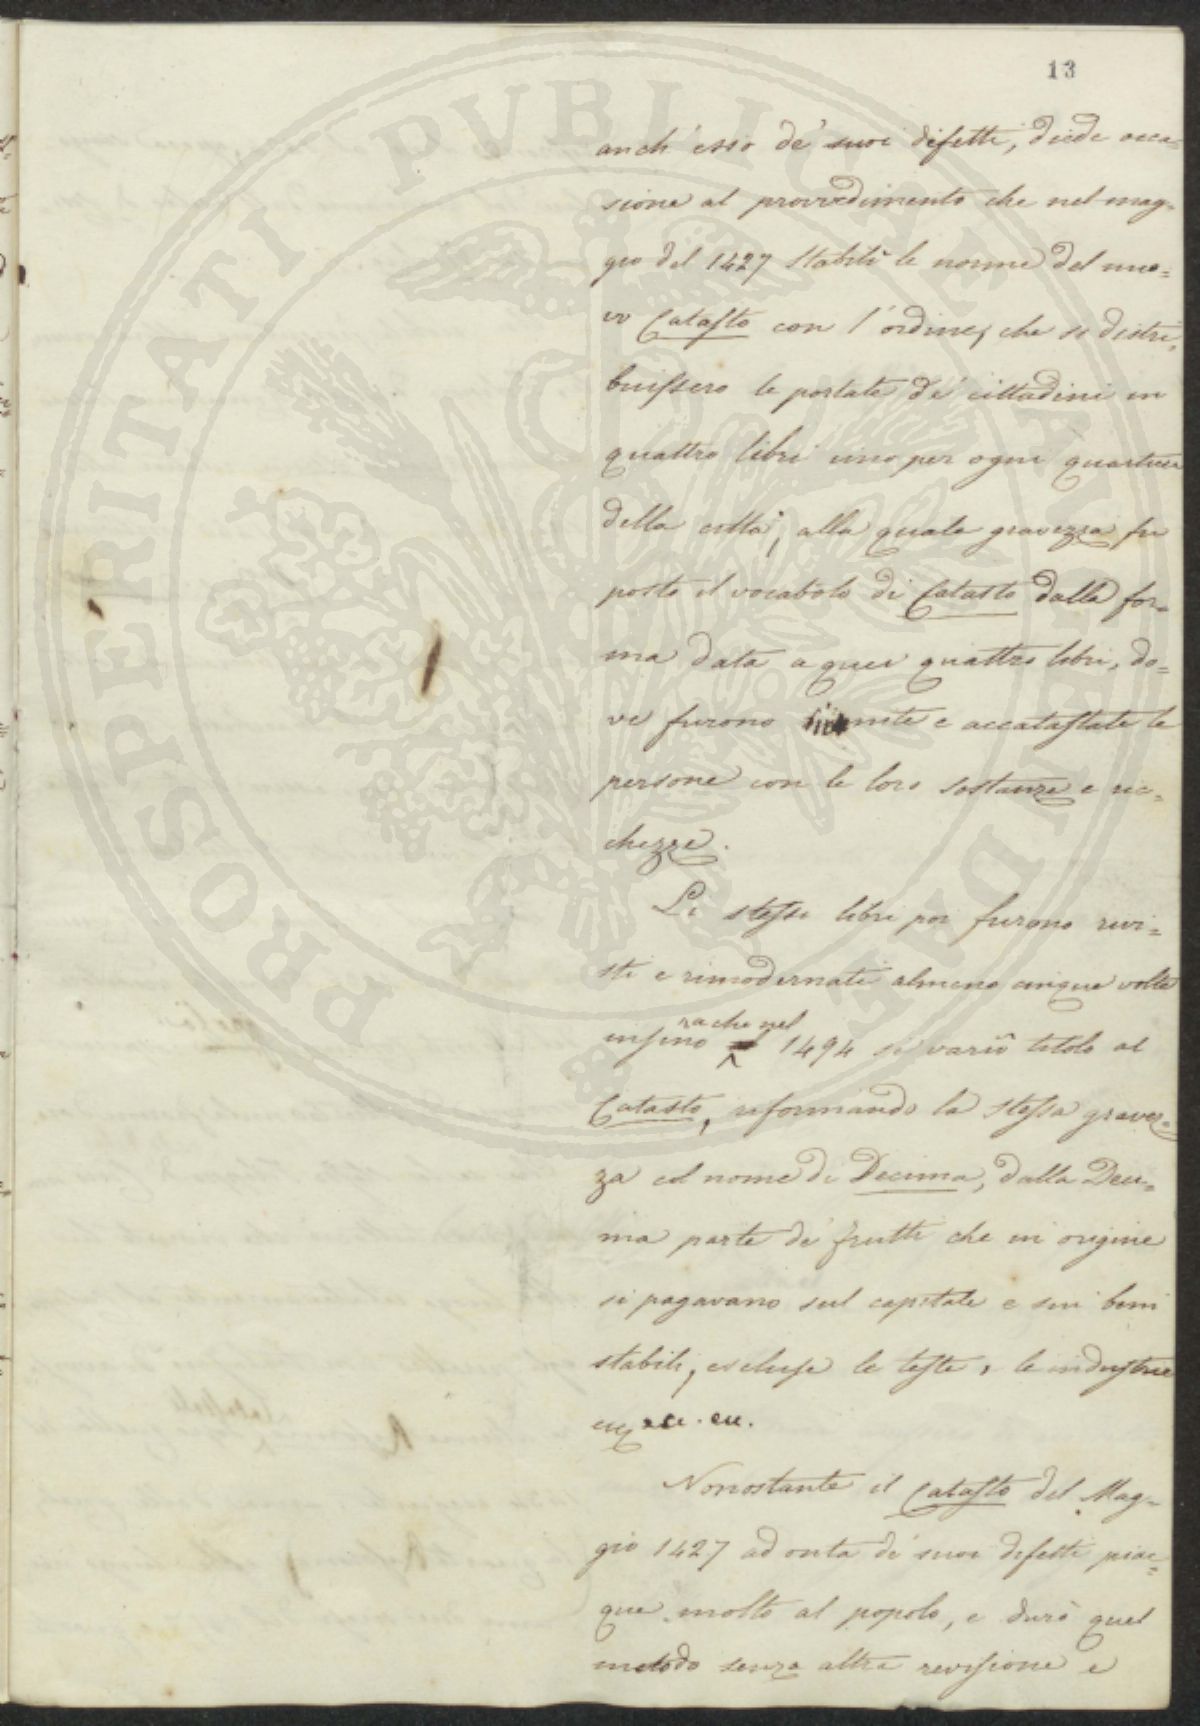 13
anch'esso de' suoi difetti, diede occa-
sione al provvedimento che nel mag-
gio del 1427 stabilì le norme del nuo-
vo Catasto con l'ordine, che si distri-
buissero le portate de' cittadini in
quattro libri uno per ogni quartiere
della città, alla quale gravezza fu
posto il vocabolo di Catasto dalla for-
ma data a quei quattro libri, do-
ve furono riunite e accatastate le
persone con le loro sostanze e ric-
chezze.
Li stessi libri poi furono rivi-
sti e rimodernati almeno cinque volte
insino
ra che nel
1494 si variò titolo al
Catasto, riformando la stessa gravez-
za col nome di Decima, dalla Deci-
ma parte de' frutti che in origine
si pagavano sul capitale e sui beni
stabili, escluse le teste, le industrie
ecc. ecc.
Nonostante il Catasto del Mag-
gio 1427 ad onta de' suoi difetti piac-
que molto al popolo, e durò quel
metodo senza altra revisione e
PROSPERITATI PVBLICAE AVGENDAE